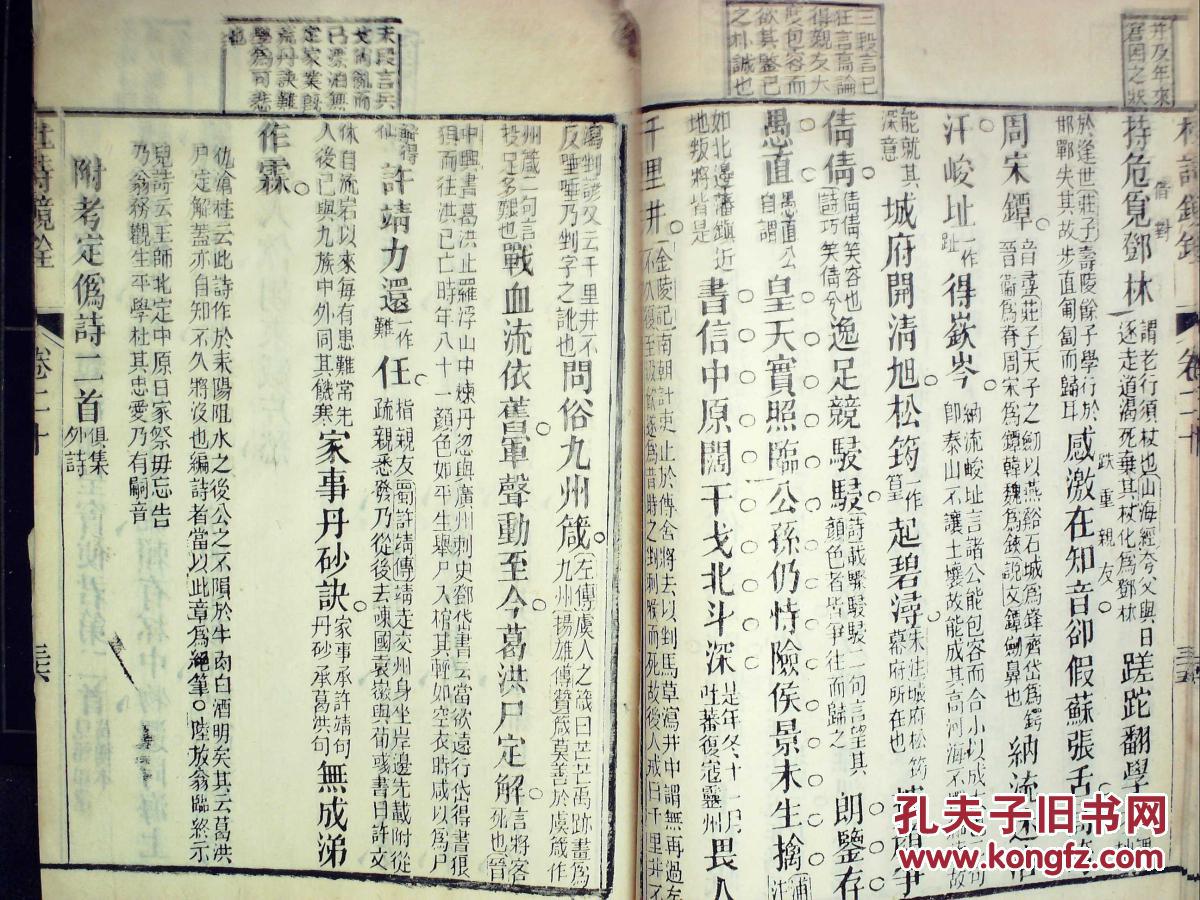 井及年來
窘困之狀
三段言己
狂言高論
得親友大
度包容而
欲其鑒己
之朴誠也
末段言兵
戈尚亂而
己漂泊無
定家業既
荒丹訣難
學為可悲
也
持危覓鄧林
謂老行須杖也山海經夸父與日
逐走道渴死棄其杖化為鄧林
蹉跎翻學
於逢世莊子壽陵餘子學行於
邯鄲失其故步直匍匐而歸耳
感激在知音卻假蘇張舌
周宋鐔
音尋莊子天子之劍以燕谿石城為鋒齊岱為鍔
晉衛為脊周宋為鐔韓魏為鋏說文鐔劍鼻也
納流
汗峻址
一作
趾
得嶔岑
納流峻址言諸公能包容而合小以成大
即泰山不讓土壤故能成其高河海不
能就其
深意
城府開清旭松筠
一作
篁
起碧潯
朱注城府松筠
幕府所在也
倩倩
詩巧笑倩兮
倩倩笑容也
逸足競駸駸
詩載驟駸駸二句言望其
顏色者皆爭往而歸之
朗鑒存
愚直
愚直公
自謂
皇天實照臨公孫仍恃險侯景未生擒
如北邊藩鎮近
地叛將皆是
書信中原闊干戈北斗深
是年冬十一月
吐蕃復寇靈州
畏人
千里井
金陵記南朝計吏止於傳舍將去以剉馬草瀉井中謂無再過
瀉剉諺又云千里井不
反唾唾乃剉字之訛也
問俗九州箴
左傳虞人之箴曰芒芒禹跡畫為
九州揚雄傳贊箴莫善於虞箴作
州箴二句言
投足多艱也
戰血流依舊軍聲動至今葛洪尸定解
言將客
死也晉
中興書葛洪止羅浮山中煉丹忽與廣州刺史鄧岱書云當欲遠行岱得書狼
狽而往洪已亡時年八十一顏色如平生舉尸入棺其輕如空衣時咸以為尸
解得
仙
許靖力還
一作
難
任
指親友蜀許靖傳靖走交州身坐岸邊先載附從
疏親悉發乃從後去陳國袁徽與荀彧書曰許文
休自流宕以來每有患難常先
人後己與九族中外同其饑寒
家事丹砂訣
家事承許靖句
丹砂承葛洪句
無成涕
作霖
仇滄柱云此詩作於耒陽阻水之後公之不隕於牛肉白酒明矣其云葛洪
尸定解蓋亦自知不久將沒也編詩者當以此章為絕筆。陸放翁臨終示
兒詩云王師北定中原日家祭毋忘告
乃翁務觀生平學杜其忠愛乃有嗣音
附考定偽詩二首
俱集
外詩
杜詩鏡銓
卷二十
三六
孔夫子旧书网
www.kongfz.com